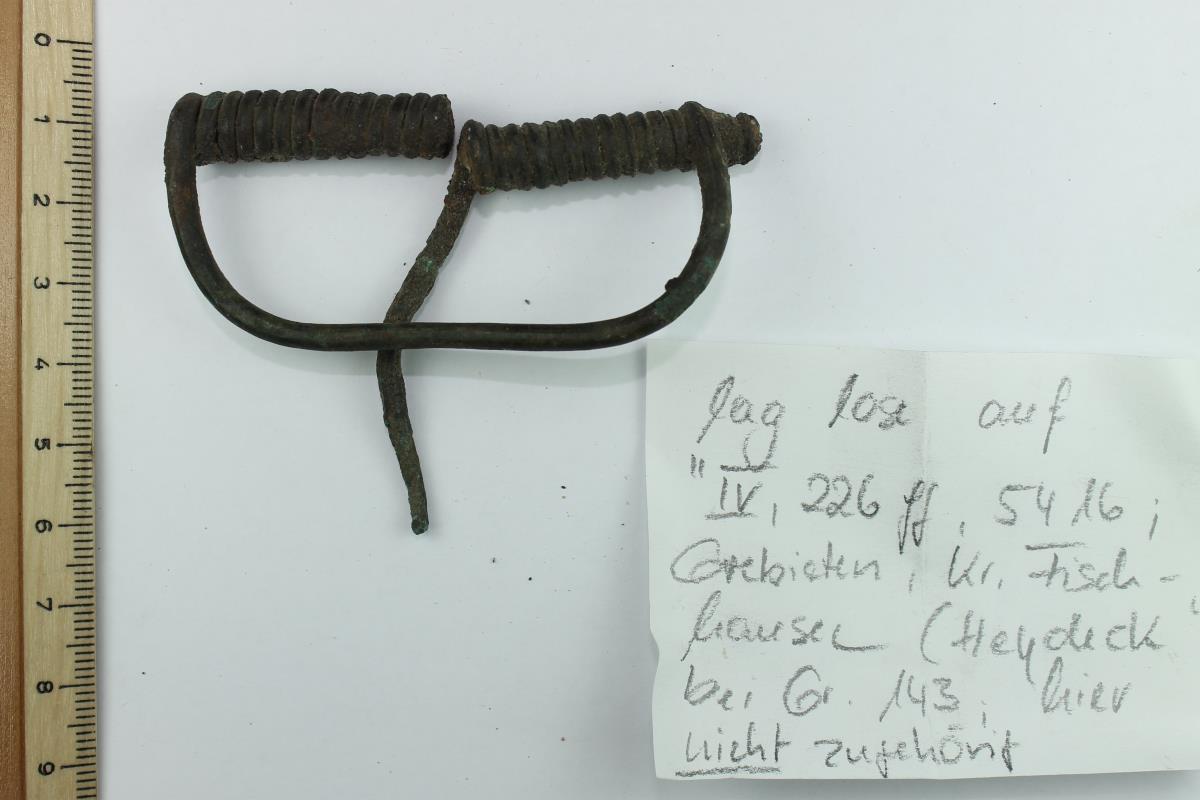 0
1
2
3
4
5
6
7
8
9
lag lose auf
"IV, 226 ff, 5416;
Grebieten, Kr. Fisch-
hausen (Heydeck"
bei Gr. 143, hier
nicht zugehörig